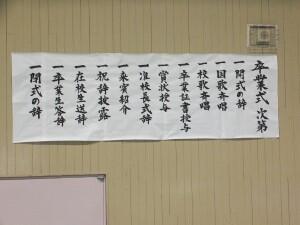 卒業式 次第
一 開式の辞
一 国歌斉唱
一 校歌斉唱
一 卒業証書授与
一 賞状授与
一 准校長式辞
一 来賓紹介
一 祝辞披露
一 在校生送辞
一 卒業生答辞
一 閉式の辞